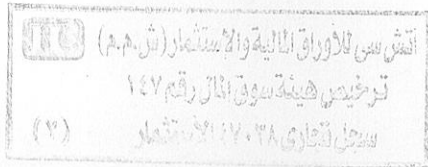 اتش سى للأوراق المالية والإستثمار (ش.م.م)
ترخيص هيئة سوق المال رقم ١٤٧
سجل تجارى ٤٧٠٣٨ الاستثمار (٣)